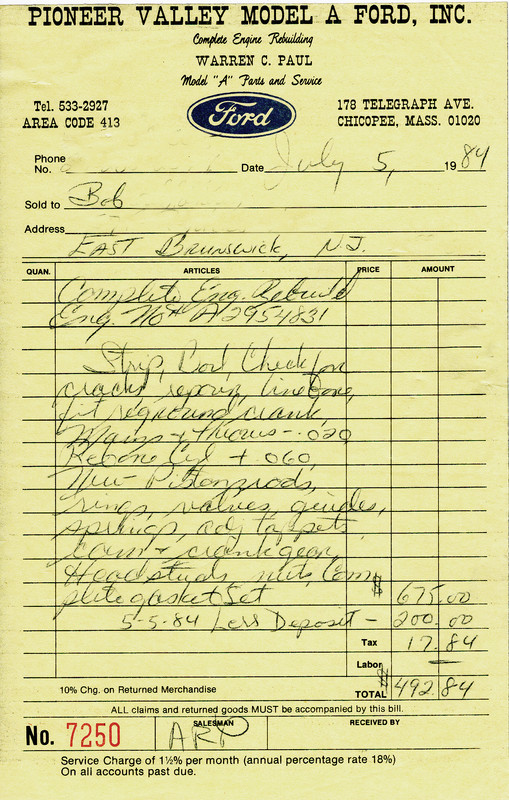 PIONEER VALLEY MODEL A FORD, INC.
Complete Engine Rebuilding
WARREN C. PAUL
Model "A" Parts and Service
Tel. 533-2927
AREA CODE 413
Ford
178 TELEGRAPH AVE.
CHICOPEE, MASS. 01020
Phone No. Date July 5, 1984
Sold to Bob
Address
EAST BRUNSWICK, N.J.
QUAN. ARTICLES PRICE AMOUNT
Complete Eng. Rebuild
Eng. No # A 2954831
Strip, Boil, Check for
cracks repair, line bore,
fit reground crank
Mains + throws -.020
Rebore Cyl +.060,
New Piston, rods,
rings, valves, guides,
springs, adj tappets
cam + crank gear,
Head studs, nuts, Com
plete gasket set $ 675.00
5-5-84 Less Deposit - 200.00
Tax 17.84
Labor —
10% Chg. on Returned Merchandise TOTAL $ 492.84
ALL claims and returned goods MUST be accompanied by this bill.
No. 7250 SALESMAN ARP RECEIVED BY
Service Charge of 1½% per month (annual percentage rate 18%)
On all accounts past due.